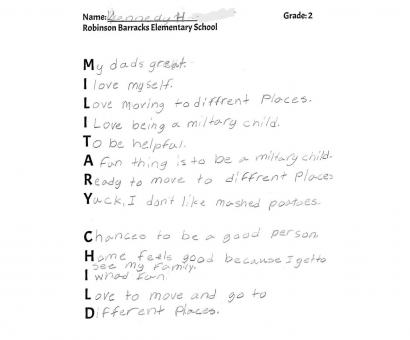 Name: Kennedy H Grade: 2
Robinson Barracks Elementary School
My dads great.
I love myself.
Love moving to diffrent Places.
I Love being a miltary child.
To be helpful.
A fun thing is to be a miltary child.
Ready to move to diffrent Places
Yuck, I don't like mashed poatoes.
Chances to be a good person.
Home feels good because I get to
see my Family.
I had fun.
Love to move and go to
Different Places.